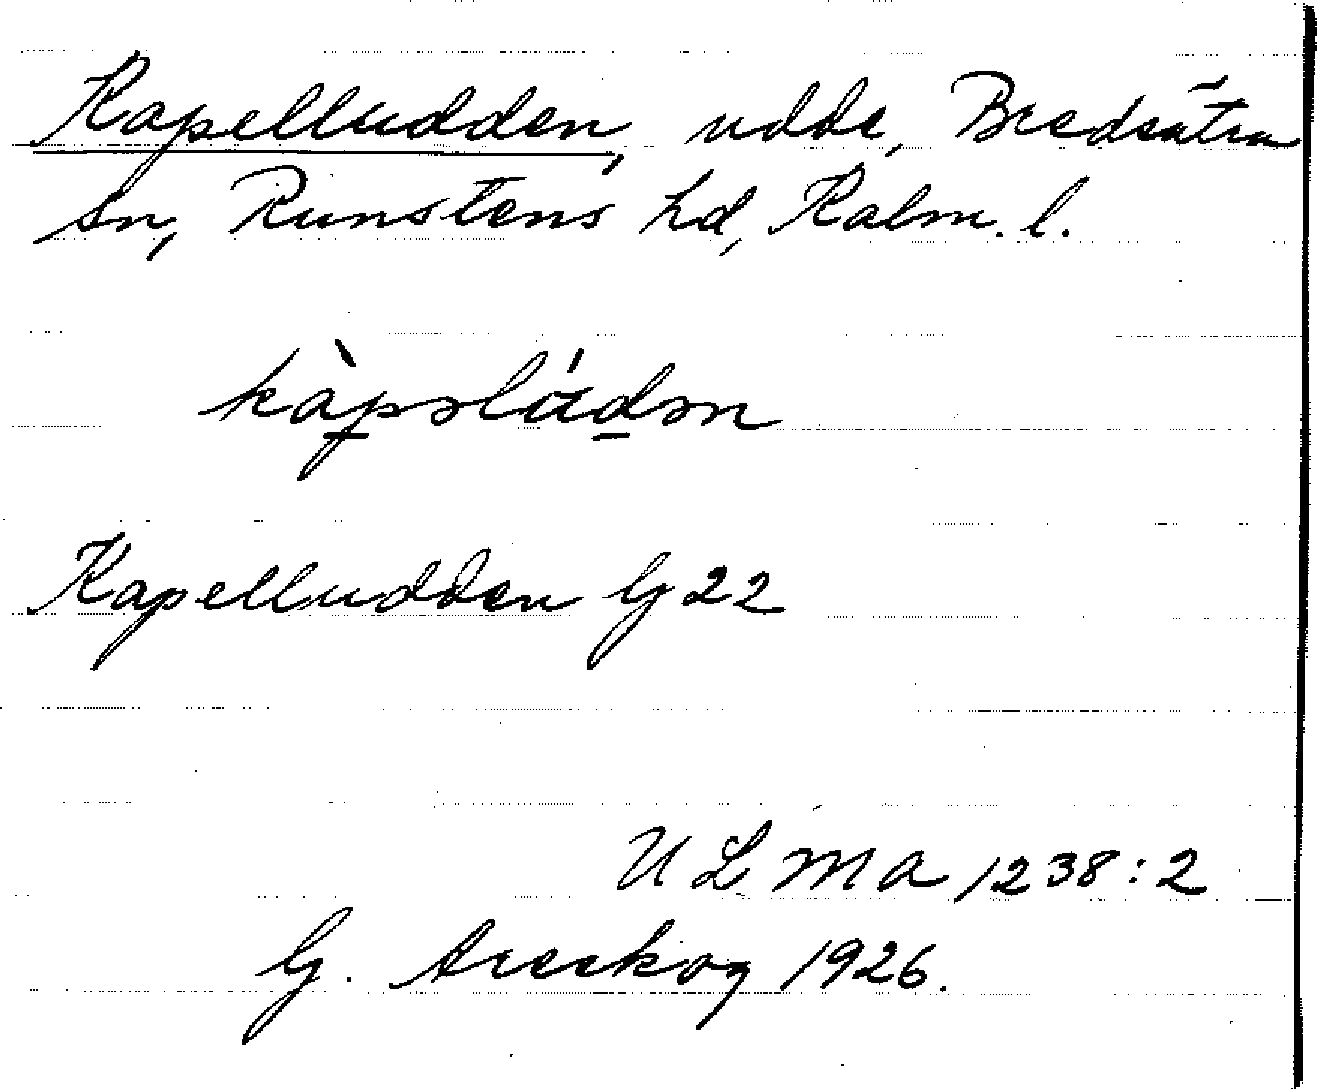 Kapelludden, udde, Bredsätra
sn, Runstens hd, Kalm. l.
kàpəlúdən
Kapelludden G 22
ULMA 1238:2
G. Areskog 1926.